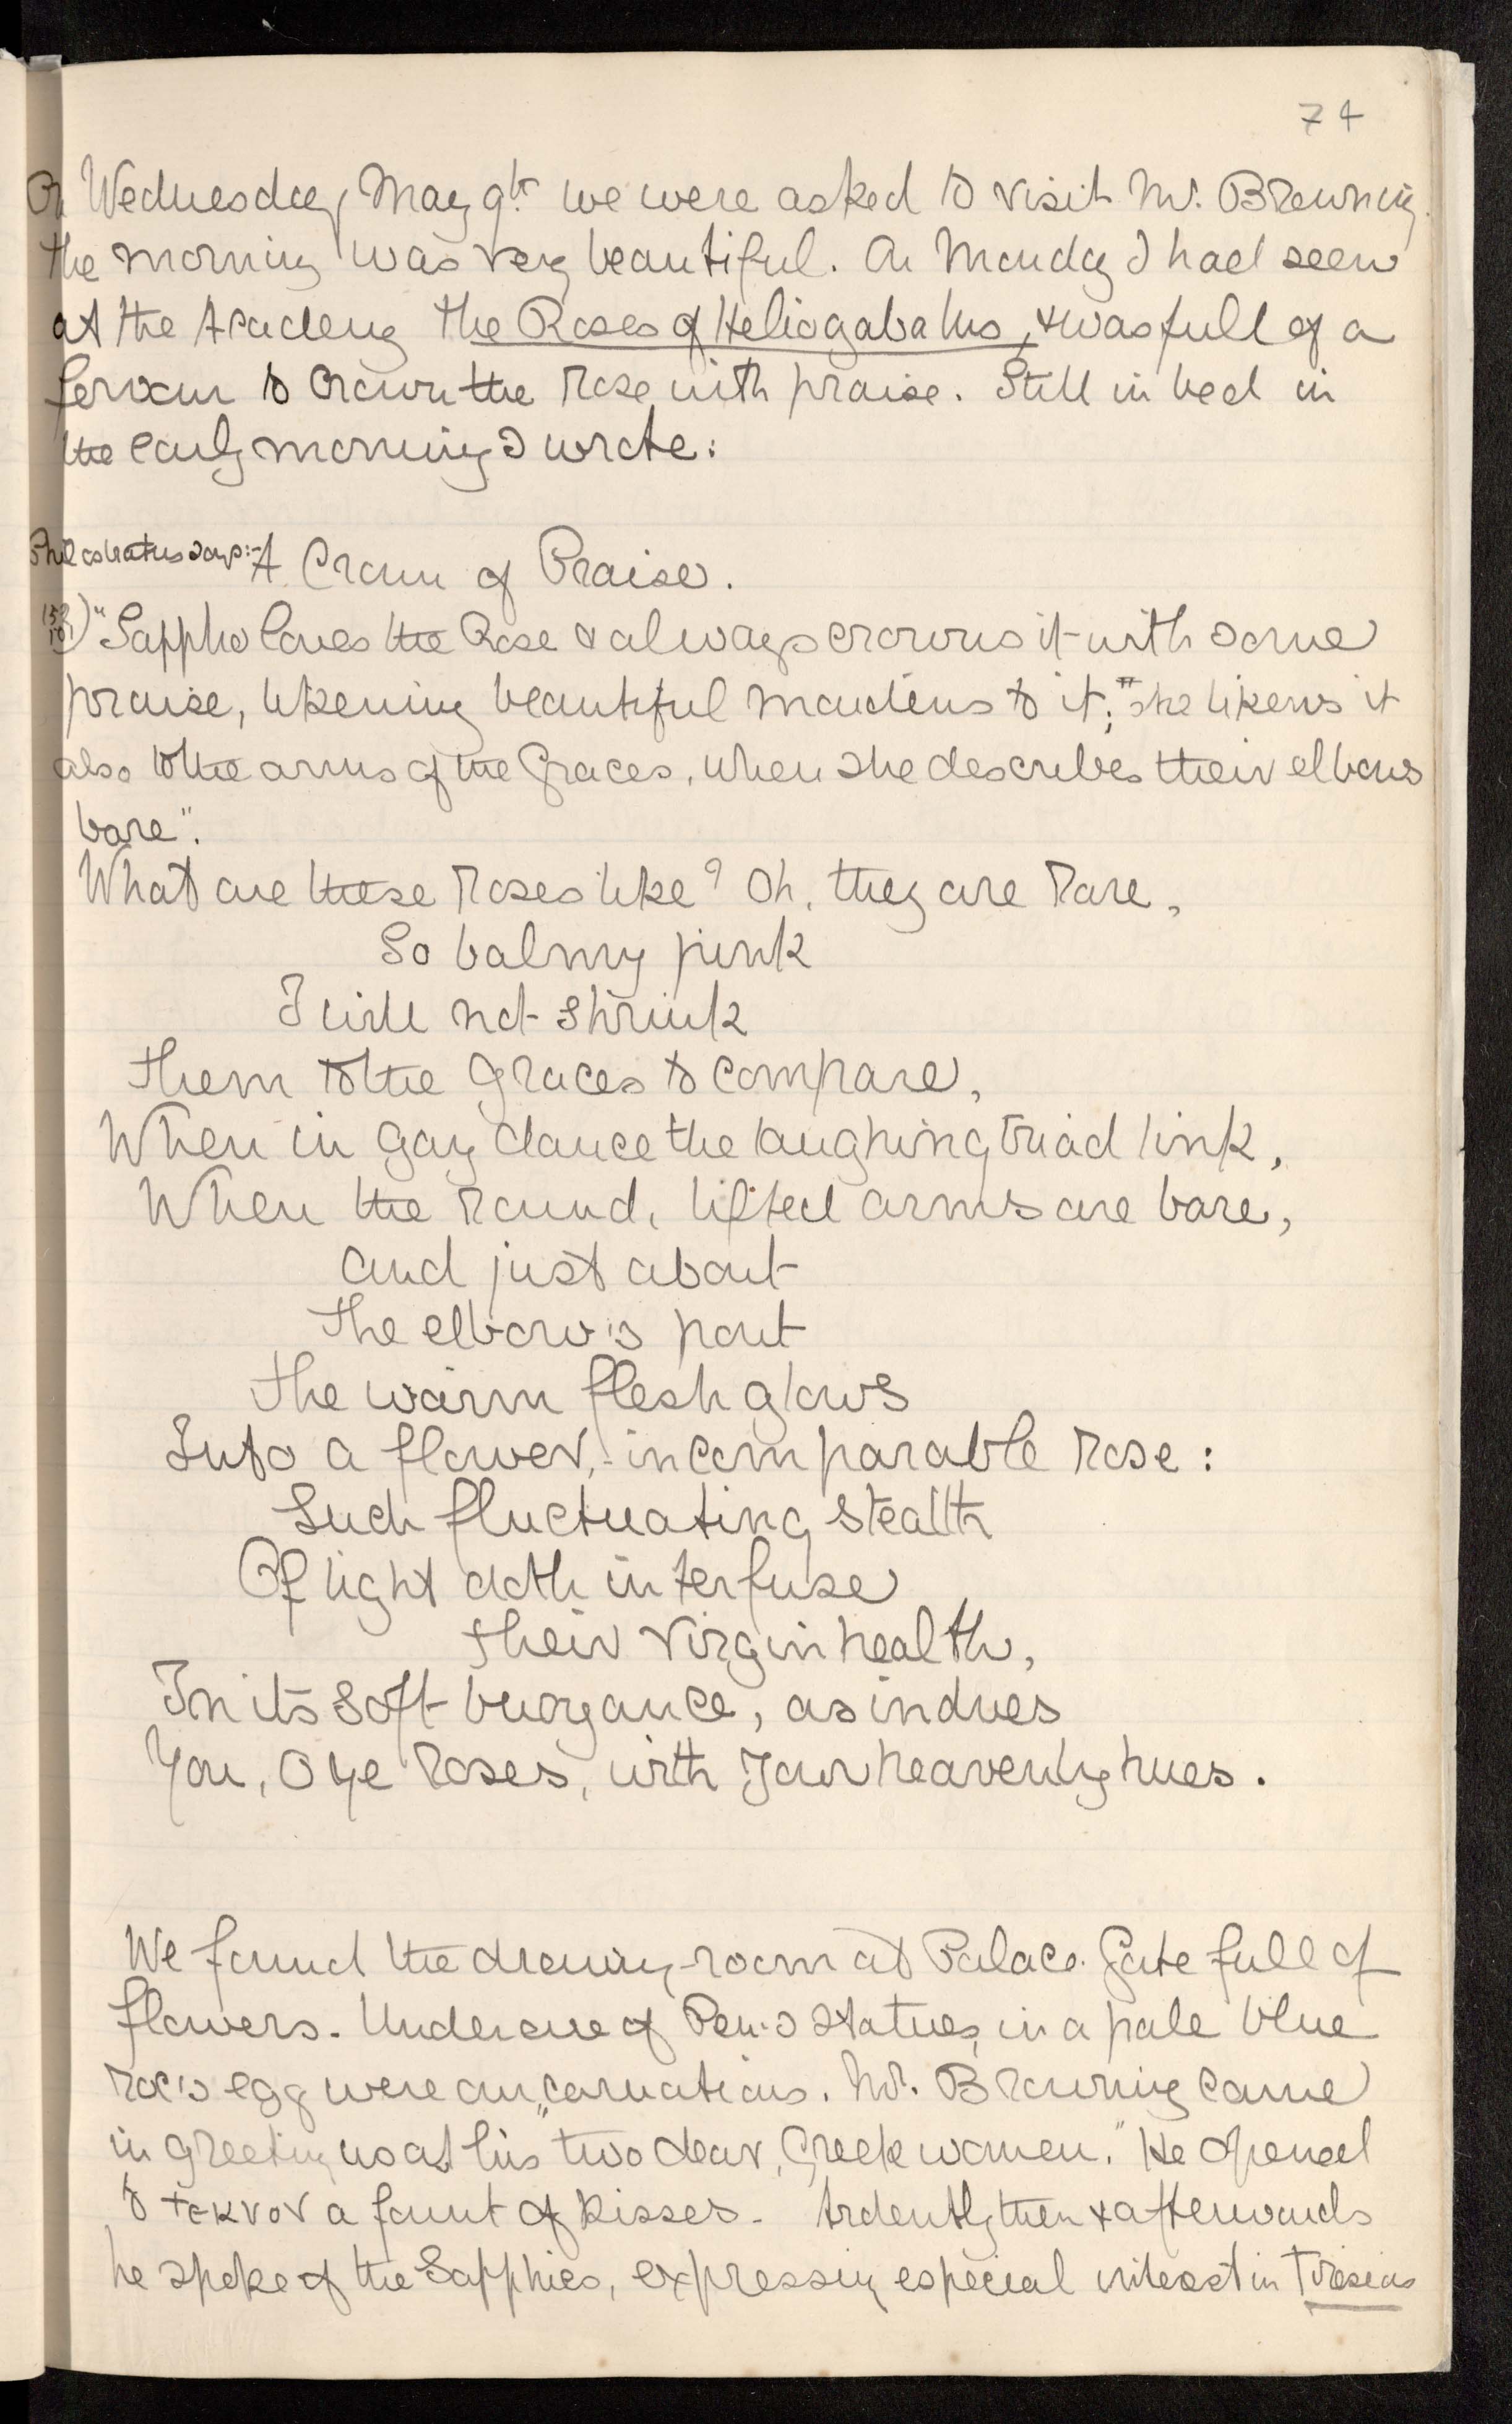 74
On Wednesday, May 9th we were asked to visit Mr. Browning.
The morning was very beautiful. On Monday I had seen
at the Academy the Roses of Heliogabalus, & was full of a
fervour to crown the rose with praise. Still in bed in
the early morning I wrote:
Philostratus says:- A Crown of Praise.
"Sappho loves the Rose & always crowns it with some
praise, likening beautiful maidens to it; she likens it
also to the arms of the Graces, when she describes their elbows
bare".
What are these roses like? Oh, they are rare,
So balmy pink
I will not shrink
Them to the Graces to compare,
When in gay dance the laughing triad link,
When the round, lifted arms are bare,
And just about
The elbow's pout
The warm flesh glows
Into a flower, - incomparable rose:
Such fluctuating stealth
Of light doth interfuse
Their virgin health,
In its soft buoyance, as indues
You, O ye Roses, with your heavenly hues.
We found the drawing-room at Palace Gate full of
flowers. Under one of Pen's statues, in a pale blue
roc's egg were our carnations. Mr. Browning came
in greeting us as his "two dear, Greek women." He opened
to τέκνον a fount of kisses. Ardently then & afterwards
he spoke of the Sapphics, expressing especial interest in Tiresias